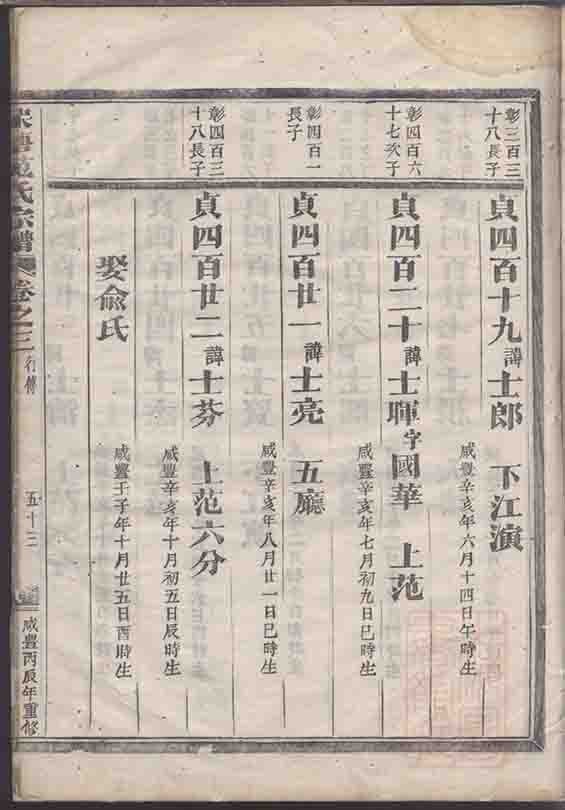 彰三百三
十八長子
貞四百十九諱士郎 下江演
咸豐辛亥年六月十四日午時生
彰四百六
十七次子
貞四百二十諱士暉字國華 上范
咸豐辛亥年七月初九日巳時生
彰四百一
長子
貞四百廿一諱士亮 五廳
咸豐辛亥年八月廿一日巳時生
彰四百三
十八長子
貞四百廿二諱士芬 上范六分
咸豐辛亥年十月初五日辰時生
娶俞氏
咸豐壬子年十月廿五日酉時生
范氏宗譜 卷之三 行傳 五十三 咸豐丙辰年重修